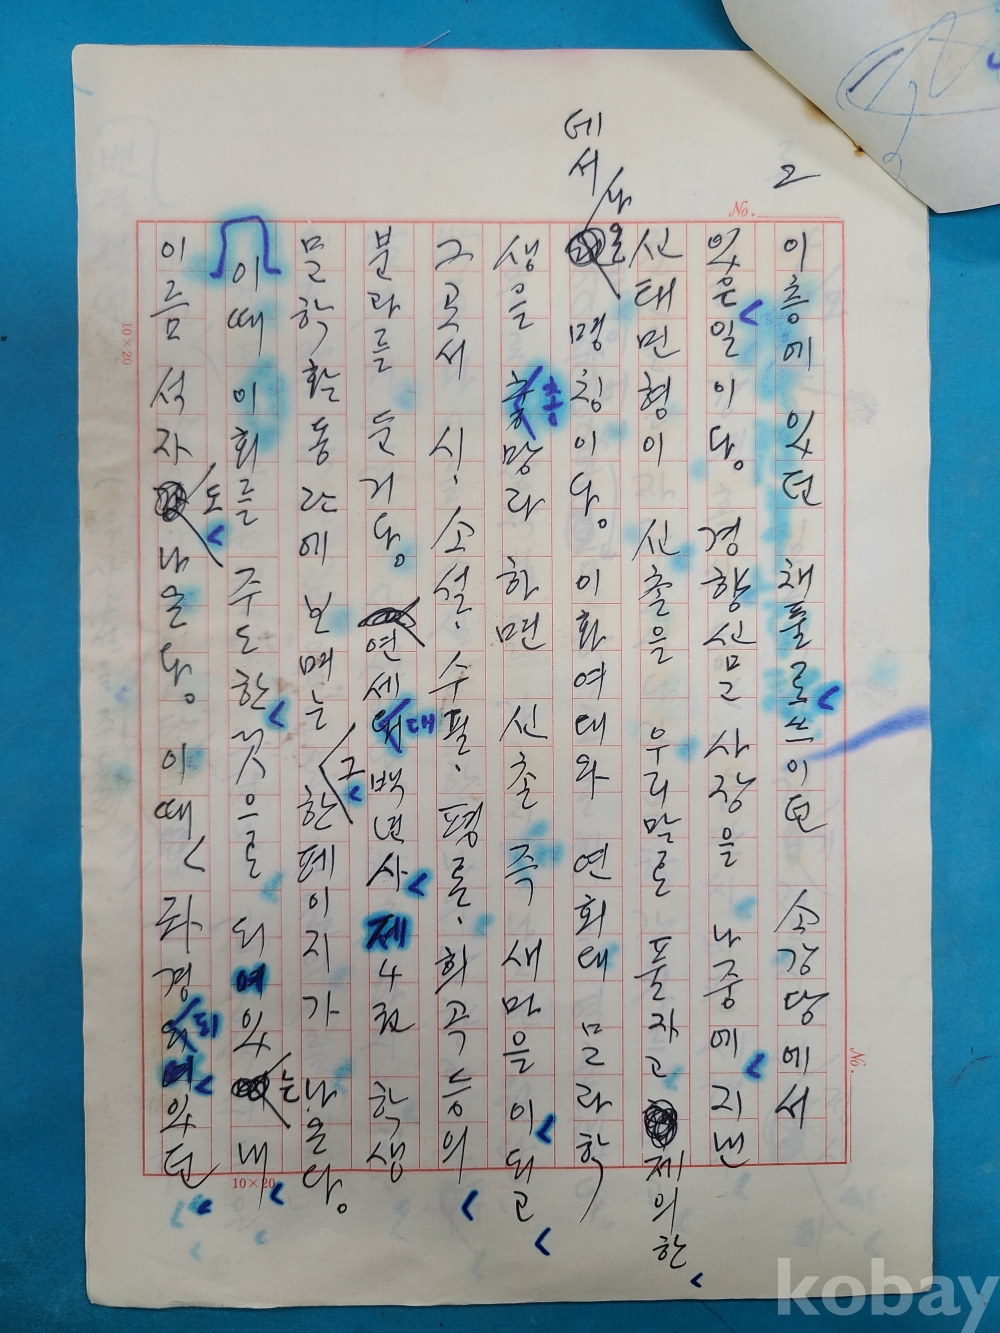 2
No.
이층에 있던 채플로 쓰이던 소강당에서
있은 일이다. 경향신문 사장을 나중에 지낸
신태민형이 신촌을 우리말로 풀자고 제의한
데서 나온 명칭이다. 이화여대와 연희대 문과학
생을 총망라 하면 신촌 즉 새마을이 되고
그곳서 시, 소설, 수필, 평론, 희곡 등의
분과를 둔거다. 연세대 백년사 제4권 학생
문학활동란에 보며는 그 한 페이지가 나온다.
이때 이회를 주도한 것으로 되여있는 내
이름 석자도 나온다. 이때 되여있던
10×20
10×20
No.
kobay